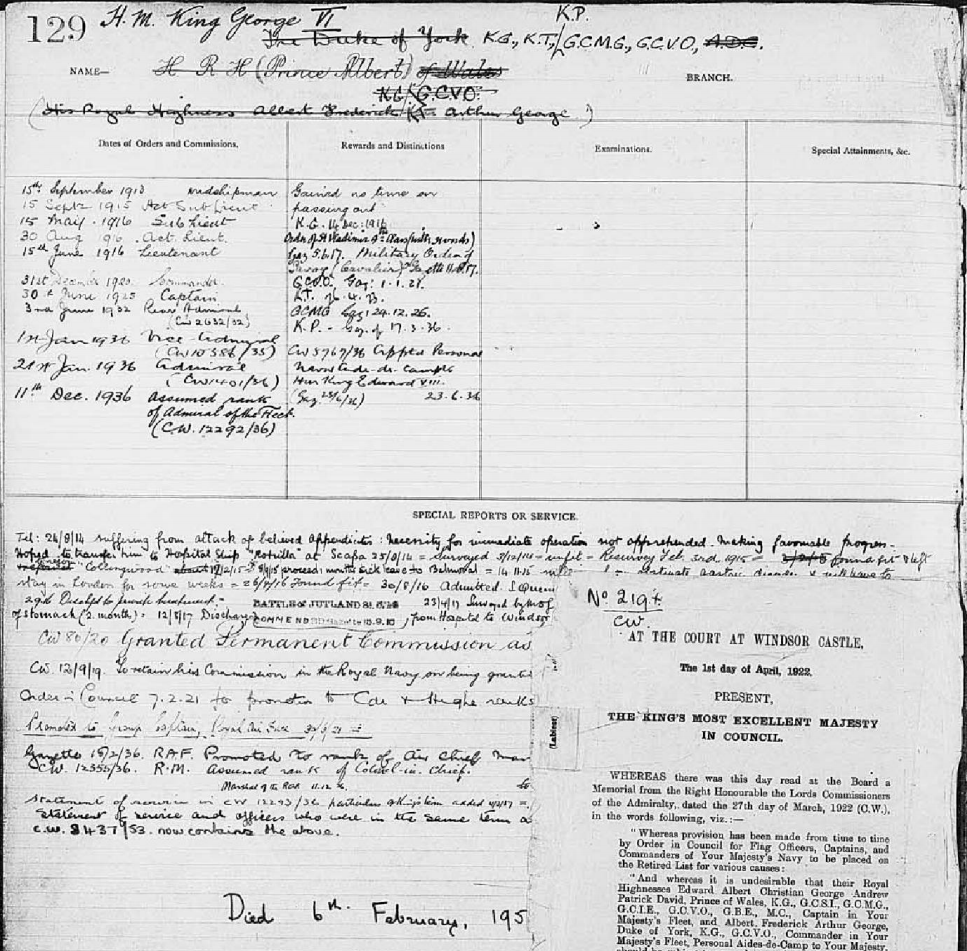 129 H.M. King George VI
K.P.
The Duke of York K.G., K.T., G.C.M.G., G.C.V.O., A.D.C.
NAME— H R H (Prince Albert) of Wales BRANCH.
K.G. G.C.V.O.
(His Royal Highness Albert Frederick Arthur George)
Dates of Orders and Commissions. Rewards and Distinctions Examinations. Special Attainments, &c.
15th September 1913 midshipman
15 Sept 1915 Act Sub Lieut
15 May 1916 Sub Lieut
30 Aug Act. Lieut.
15th June 1916 Lieutenant
31st December 1920 Commander
30th June 1925 Captain
3rd June 1932 Rear Admiral
(CW 2632/32)
1st Jan 1936 Vice Admiral
(CW 10586/35)
21st Jan. 1936 Admiral
(CW 1401/36)
11th Dec. 1936 Assumed rank
of Admiral of the Fleet
(C.W. 12292/36)
Gained no time on
passing out
K.G. 14 Dec: 1916
Order of St Vladimir 4th Class (with swords)
Gaz 5.6.17. Military Order of
Savoy (Cavalier) Gazette
G.C.V.O. Gaz: 1.1.21.
K.T.
GCMG Gaz: 24.12.26.
K.P. - Gaz. of 17.3.36.
CW 5767/36 Appted Personal
Naval Aide-de-Camp
King Edward VIII.
(Gaz. 23/6/36) 23.6.36
SPECIAL REPORTS OR SERVICE.
Tel: 26/8/14 suffering from attack of believed Appendicitis: Necessity for immediate operation not apprehended. Making favourable progress.
Hoped to transfer him to Hospital Ship "Rohilla" at Scapa 25/8/14 = Surveyed unfit = Resurvey Feb. 3rd 1915 = found fit
"Collingwood" proceed months sick leave to Balmoral =
stay in London for some weeks = found fit = 30/8/16 Admitted.
BATTLE OF JUTLAND 31.5.16 23/4/17 Surveyed
of stomach (2 month) = 12/5/17 Discharged COMMENDED 15.9.16, from Hospital to Windsor
CW 80/20 Granted Permanent Commission as
CW. 12/9/19. To retain his Commission in the Royal Navy on being granted
Order in Council 7.2.21 for promotion to Cdr & Higher ranks
Promoted to Group Captain, Royal Air Force
Gazette R.A.F. Promoted to rank of Air Chief Mar
CW. 12355/36. R.M. Assumed rank of Colonel-in-Chief.
Marshal of the RAF 11.12.36.
Statement of service in CW 12293/36 particulars of King's term added
Statement of service and officers who were in the same term a
C.W. 8437/53. now contains the above.
Died 6th February, 195
No 219
CW.
AT THE COURT AT WINDSOR CASTLE,
The 1st day of April, 1922.
PRESENT,
THE KING'S MOST EXCELLENT MAJESTY
IN COUNCIL.
WHEREAS there was this day read at the Board a
Memorial from the Right Honourable the Lords Commissioners
of the Admiralty, dated the 27th day of March, 1922 (C.W.),
in the words following, viz.:—
"Whereas provision has been made from time to time
by Order in Council for Flag Officers, Captains, and
Commanders of Your Majesty's Navy to be placed on
the Retired List for various causes:
"And whereas it is undesirable that their Royal
Highnesses Edward Albert Christian George Andrew
Patrick David, Prince of Wales, K.G., G.C.S.I., G.C.M.G.,
G.C.I.E., G.C.V.O., G.B.E., M.C., Captain in Your
Majesty's Fleet, and Albert Frederick Arthur George,
Duke of York, K.G., G.C.V.O., Commander in Your
Majesty's Fleet, Personal Aides-de-Camp to Your Majesty,